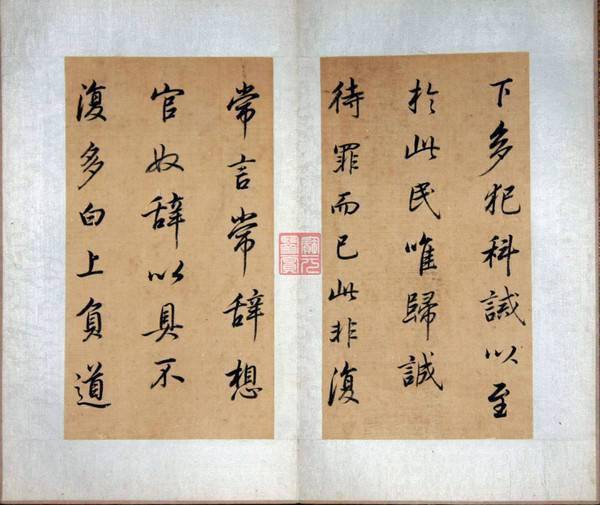 下多犯科誡以至
於此民唯歸誠
待罪而已此非復
常言常辞想
官奴辞以具不
復多白上負道